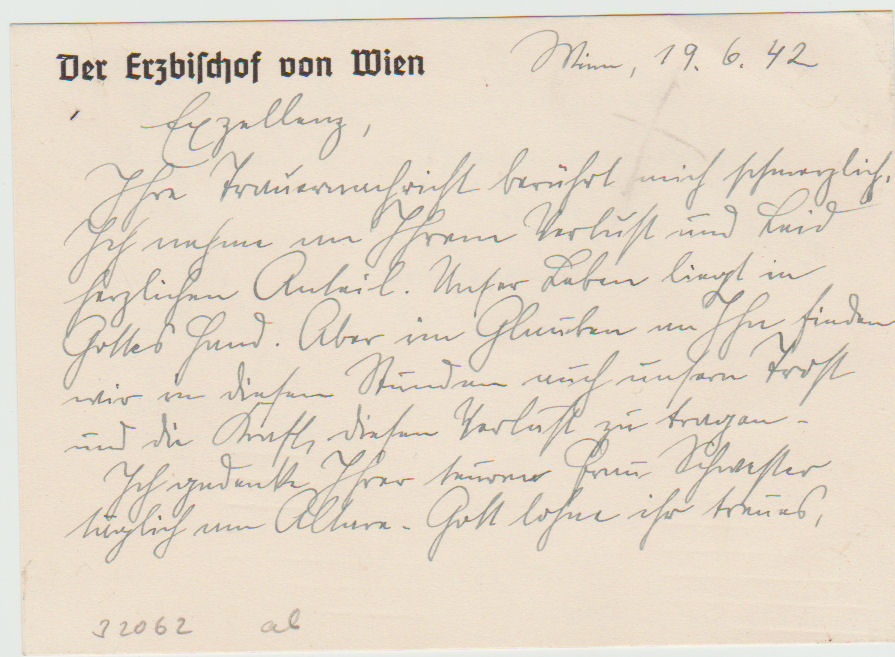 Der Erzbischof von Wien
Wien, 19. 6. 42
Exzellenz,
Ihre Trauernachricht berührt mich schmerzlich.
Ich nehme an Ihrem Verlust und Leid
herzlichen Anteil. Unser Leben liegt in
Gottes Hand. Aber im Glauben an Ihn finden
wir in diesen Stunden auch unsern Trost
und die Kraft, diesen Verlust zu tragen.
Ich gedenke Ihrer teuren Frau Schwester
täglich am Altare. Gott lohne ihr treues,
32062 ab